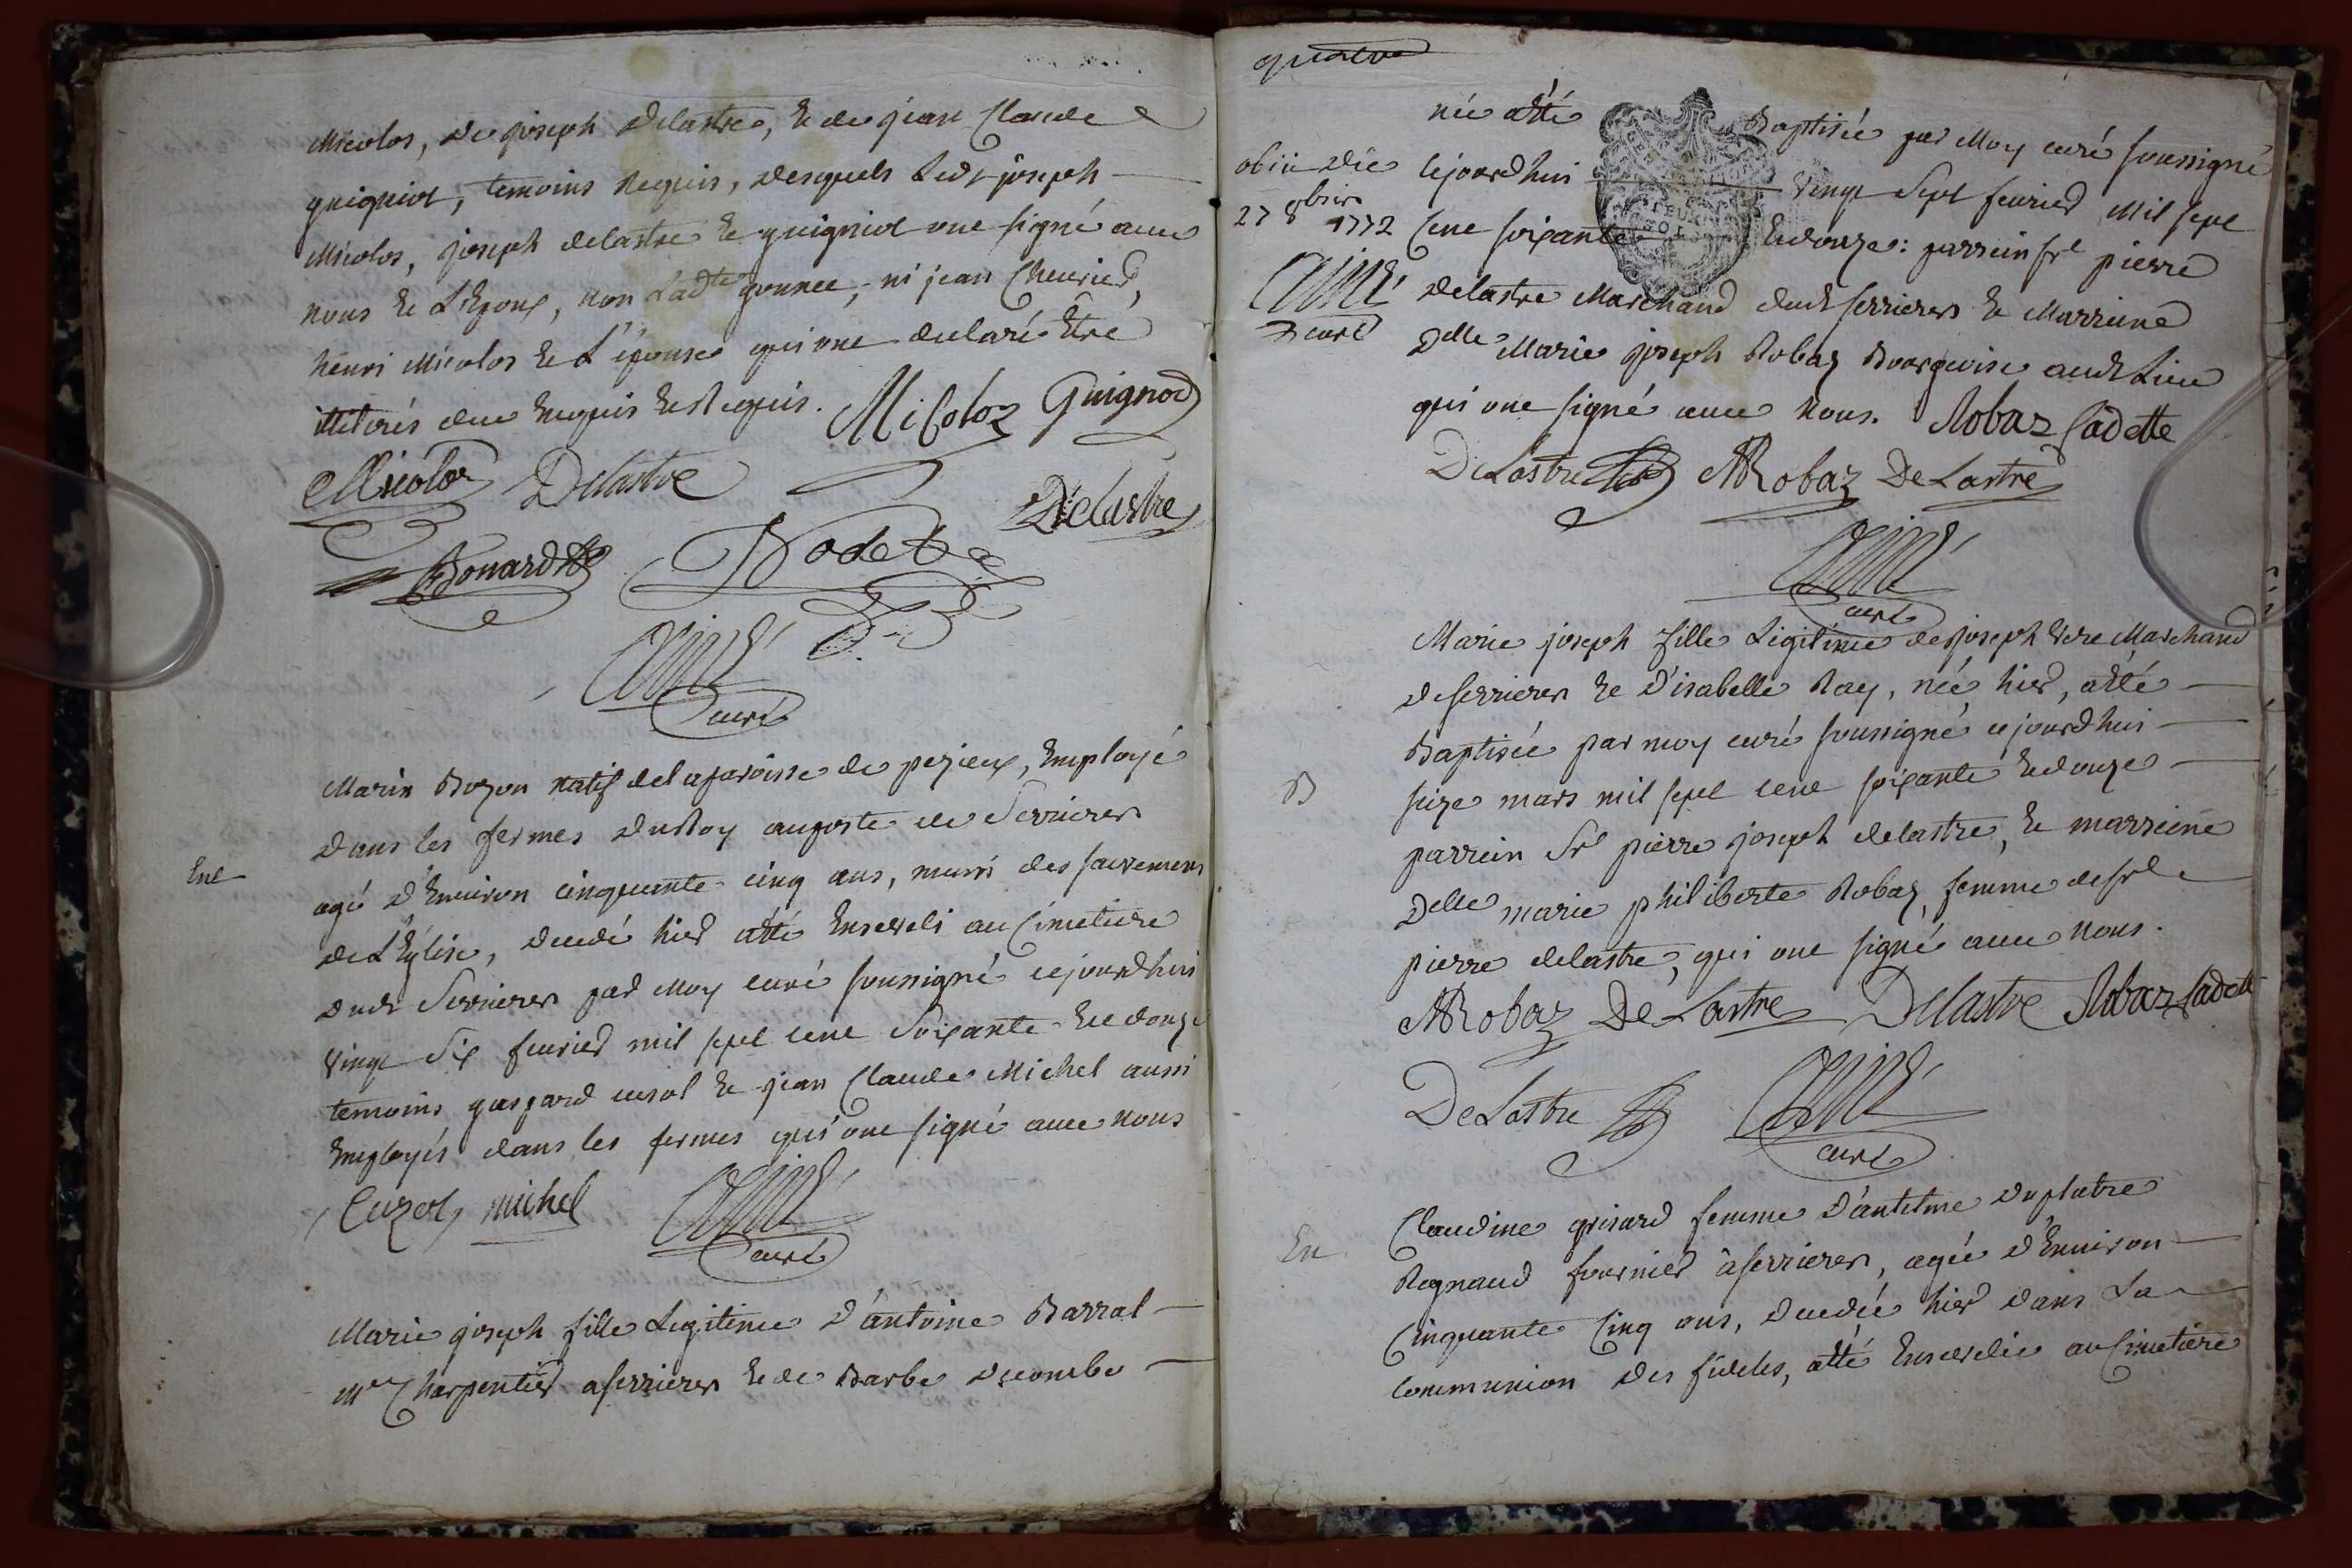 Micolos, de joseph Delastre, & de jean Claude
guigniot, temoins Requis, desquels Ledt joseph
Micolos, joseph delastre & guigniot ont signé avec
nous & L'Epoux, non Ladte gonnet, ni jean Cheurier,
henri Micolos & L'épouse qui ont declaré Etre
illiterés due Enquis & Requis. Micoloz Guignod
Micoloz Delastre
Delastre
Bonard Rodet
Aimé
curé
Marin Bozon natif de la paroisse de pezieux, Employé
dans les fermes du Roy auposte de Serrieres
Ent
agé d'Environ cinquante-cinq ans, muni des sacremens
de L'Eglise, decedé hier atté Enseveli au Cimetiere
dudt Serrieres par Moy curé soussigné cejourdhui
vingt Six fevrier mil sept cent Soixante & douze
temoins gaspard cusol & jean Claude Michel aussi
Employés dans les fermes qui ont signé avec nous
Cuzol michel Aimé
curé
Marie joseph fille Legitime d'antoine Barral
Me Charpentier a serrieres & de Barbe Decombe
quatre
née atté Baptisée par Moy curé soussigné
obiit die cejourdhui vingt Sept fevrier Mil sept
27 8bris 1772 Cent soixante Et douze: parrein sr pierre
Aimé Delastre Marchand dudt serrieres & Marreine
curé
Delle Marie joseph Robaz Bourgeoise audt Lieu
qui ont signé avec nous. Robaz Cadette
DeLastre MRobaz DeLastre
Aimé
curé
Marie joseph fille Legitime de joseph Marchand
de serrieres & d'isabelle Ray, née hier, atté
Baptisée par moy curé soussigné cejourdhui
B
seize mars mil sept cent soixante & douze
parrein Sr pierre joseph delastre, & marreine
Delle marie philiberte Robaz, femme de sr
pierre delastre, qui ont signé avec nous.
MRobaz DeLastre Delastre Robaz Cadette
DeLastre Aimé
curé
Claudine grisard femme d'antelme duplatre
En
Regnaud fournier à serrieres, agée d'Environ
Cinquante Cinq ans, decedée hier dans La
Communion des fideles, atté Ensevelie au Cimetiere